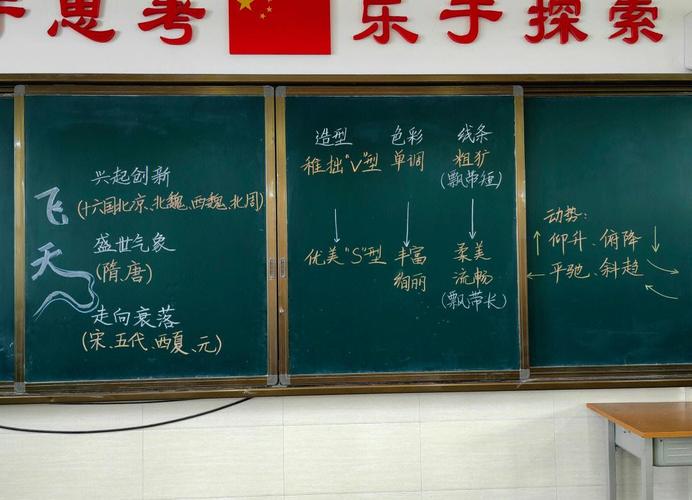 思考
乐于探索
飞天
兴起创新
(十六国北凉、北魏、西魏、北周)
盛世气象
(隋、唐)
走向衰落
(宋、五代、西夏、元)
造型 色彩 线条
稚拙"V"型 单调 粗犷
(飘带短)
优美"S"型 丰富 柔美
绚丽 流畅
(飘带长)
动势:
仰升、俯降
平驰、斜趋